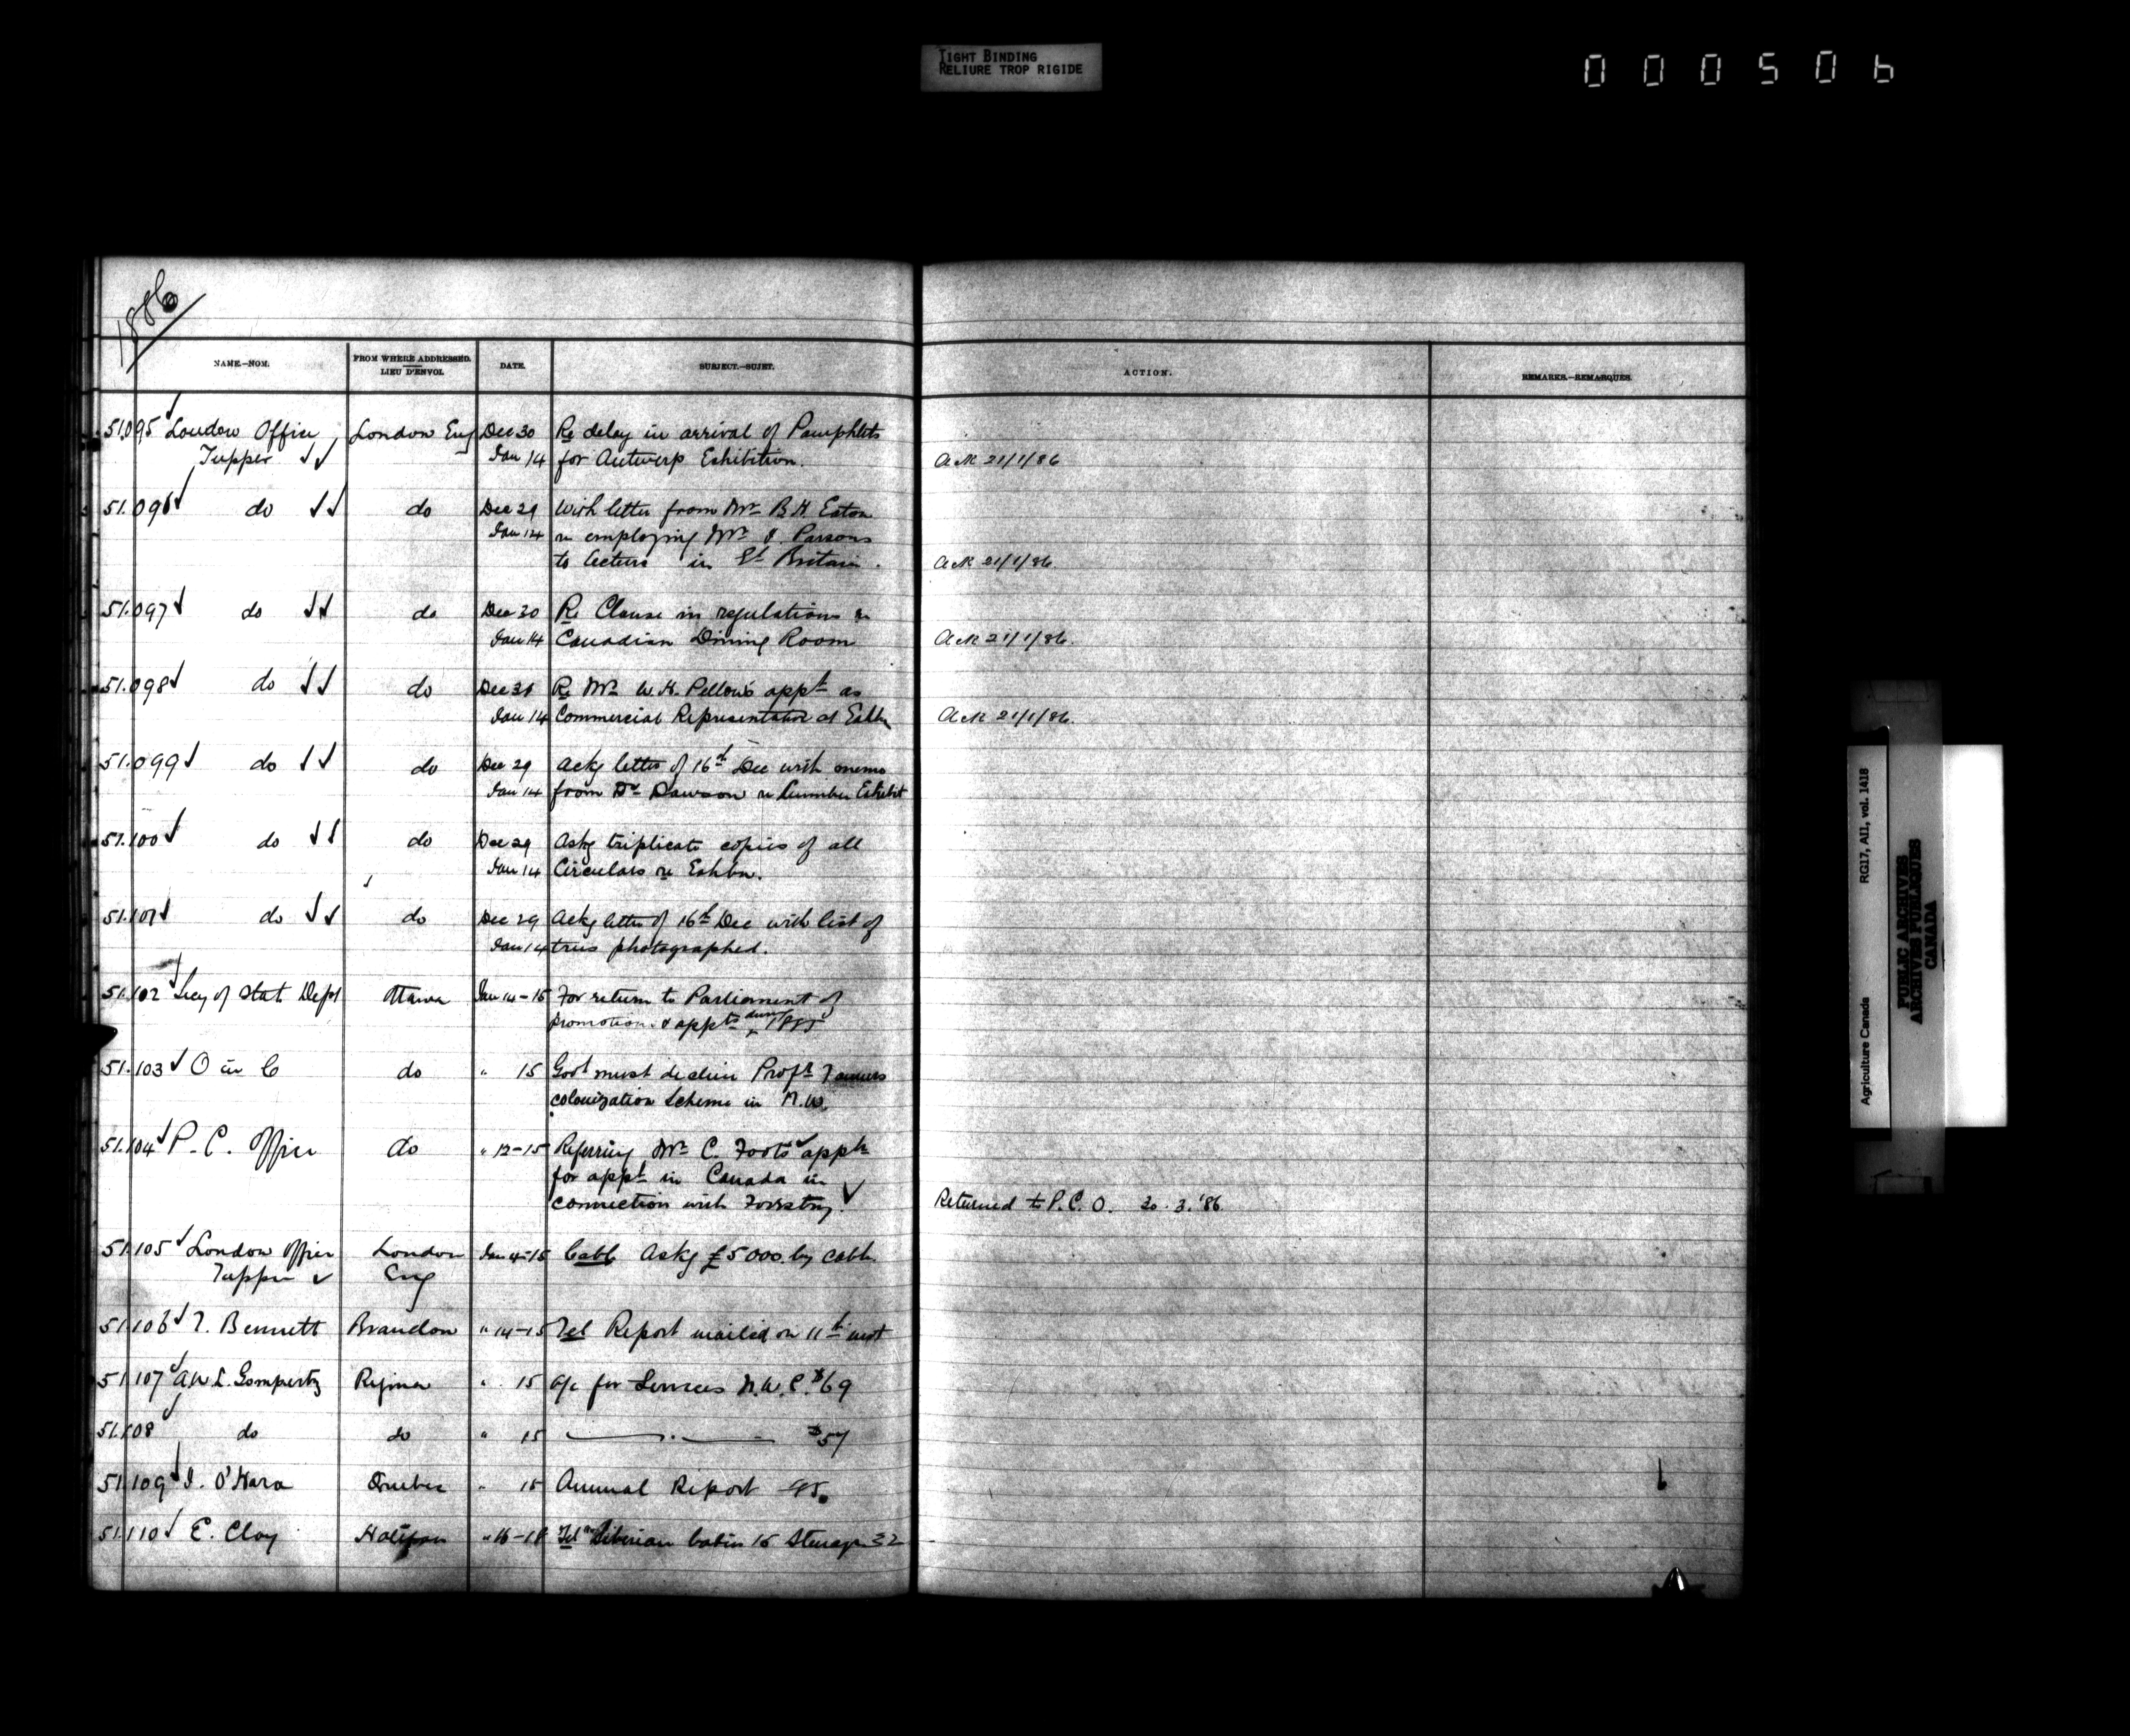 TIGHT BINDING
RELIURE TROP RIGIDE
000506
1886
NAME.—NOM. FROM WHERE ADDRESSED. LIEU D'ENVOI. DATE. SUBJECT.—SUJET. ACTION. REMARKS.—REMARQUES.
51.095 London Office London Eng Dec 30 Re delay in arrival of Pamphlets
Tupper Jan 14 for Antwerp Exhibition. Ack 21/1/86
51.096 do do Dec 29 With letter from Mr B H Eaton
Jan 14 re employing Mr J. Parsons
to lecture in Gt Britain. Ack 21/1/86.
51.097 do do Dec 30 Re Clause in regulations re
Jan 14 Canadian Dining Room Ack 21/1/86.
51.098 do do Dec 31 Re Mr W. H. Pellow's appt as
Jan 14 Commercial Representative at Exhbn Ack 21/1/86.
51.099 do do Dec 29 Ackg letter of 16th Dec with memo
Jan 14 from Dr Dawson re Lumber Exhibit
51.100 do do Dec 29 Askg triplicate copies of all
Jan 14 Circulars re Exhbn.
51.101 do do Dec 29 Ackg letter of 16th Dec with list of
Jan 14 trees photographed.
51.102 Secy of State Dept Ottawa Jan 14-15 For return to Parliament of
promotions & appts during 1885
51.103 O in C do " 15 Govt must decline Profr Tanners
colonization Scheme in N.W.
51.104 P. C. Office do " 12-15 Referring Mr C. Foots appln
for appt in Canada in
connection with Forestry. Returned to P.C.O. 20.3.'86
51.105 London Office London Jan 4-15 Cable Askg £5000 by cable.
Tupper Eng
51.106 T. Bennett Brandon " 14-15 Tel Report mailed on 11th inst
51.107 A.W.L. Gompertz Regina " 15 a/c for Services N.W.C. $69
51.108 do do " 15 —— . —— $57
51.109 J. O'Hara Quebec " 15 Annual Report 85.
51.110 E. Clay Halifax " 16-18 Tel Siberian Cabin 15 Steerage 32
Agriculture Canada RG17, AII, vol. 1418
PUBLIC ARCHIVES
ARCHIVES PUBLIQUES
CANADA